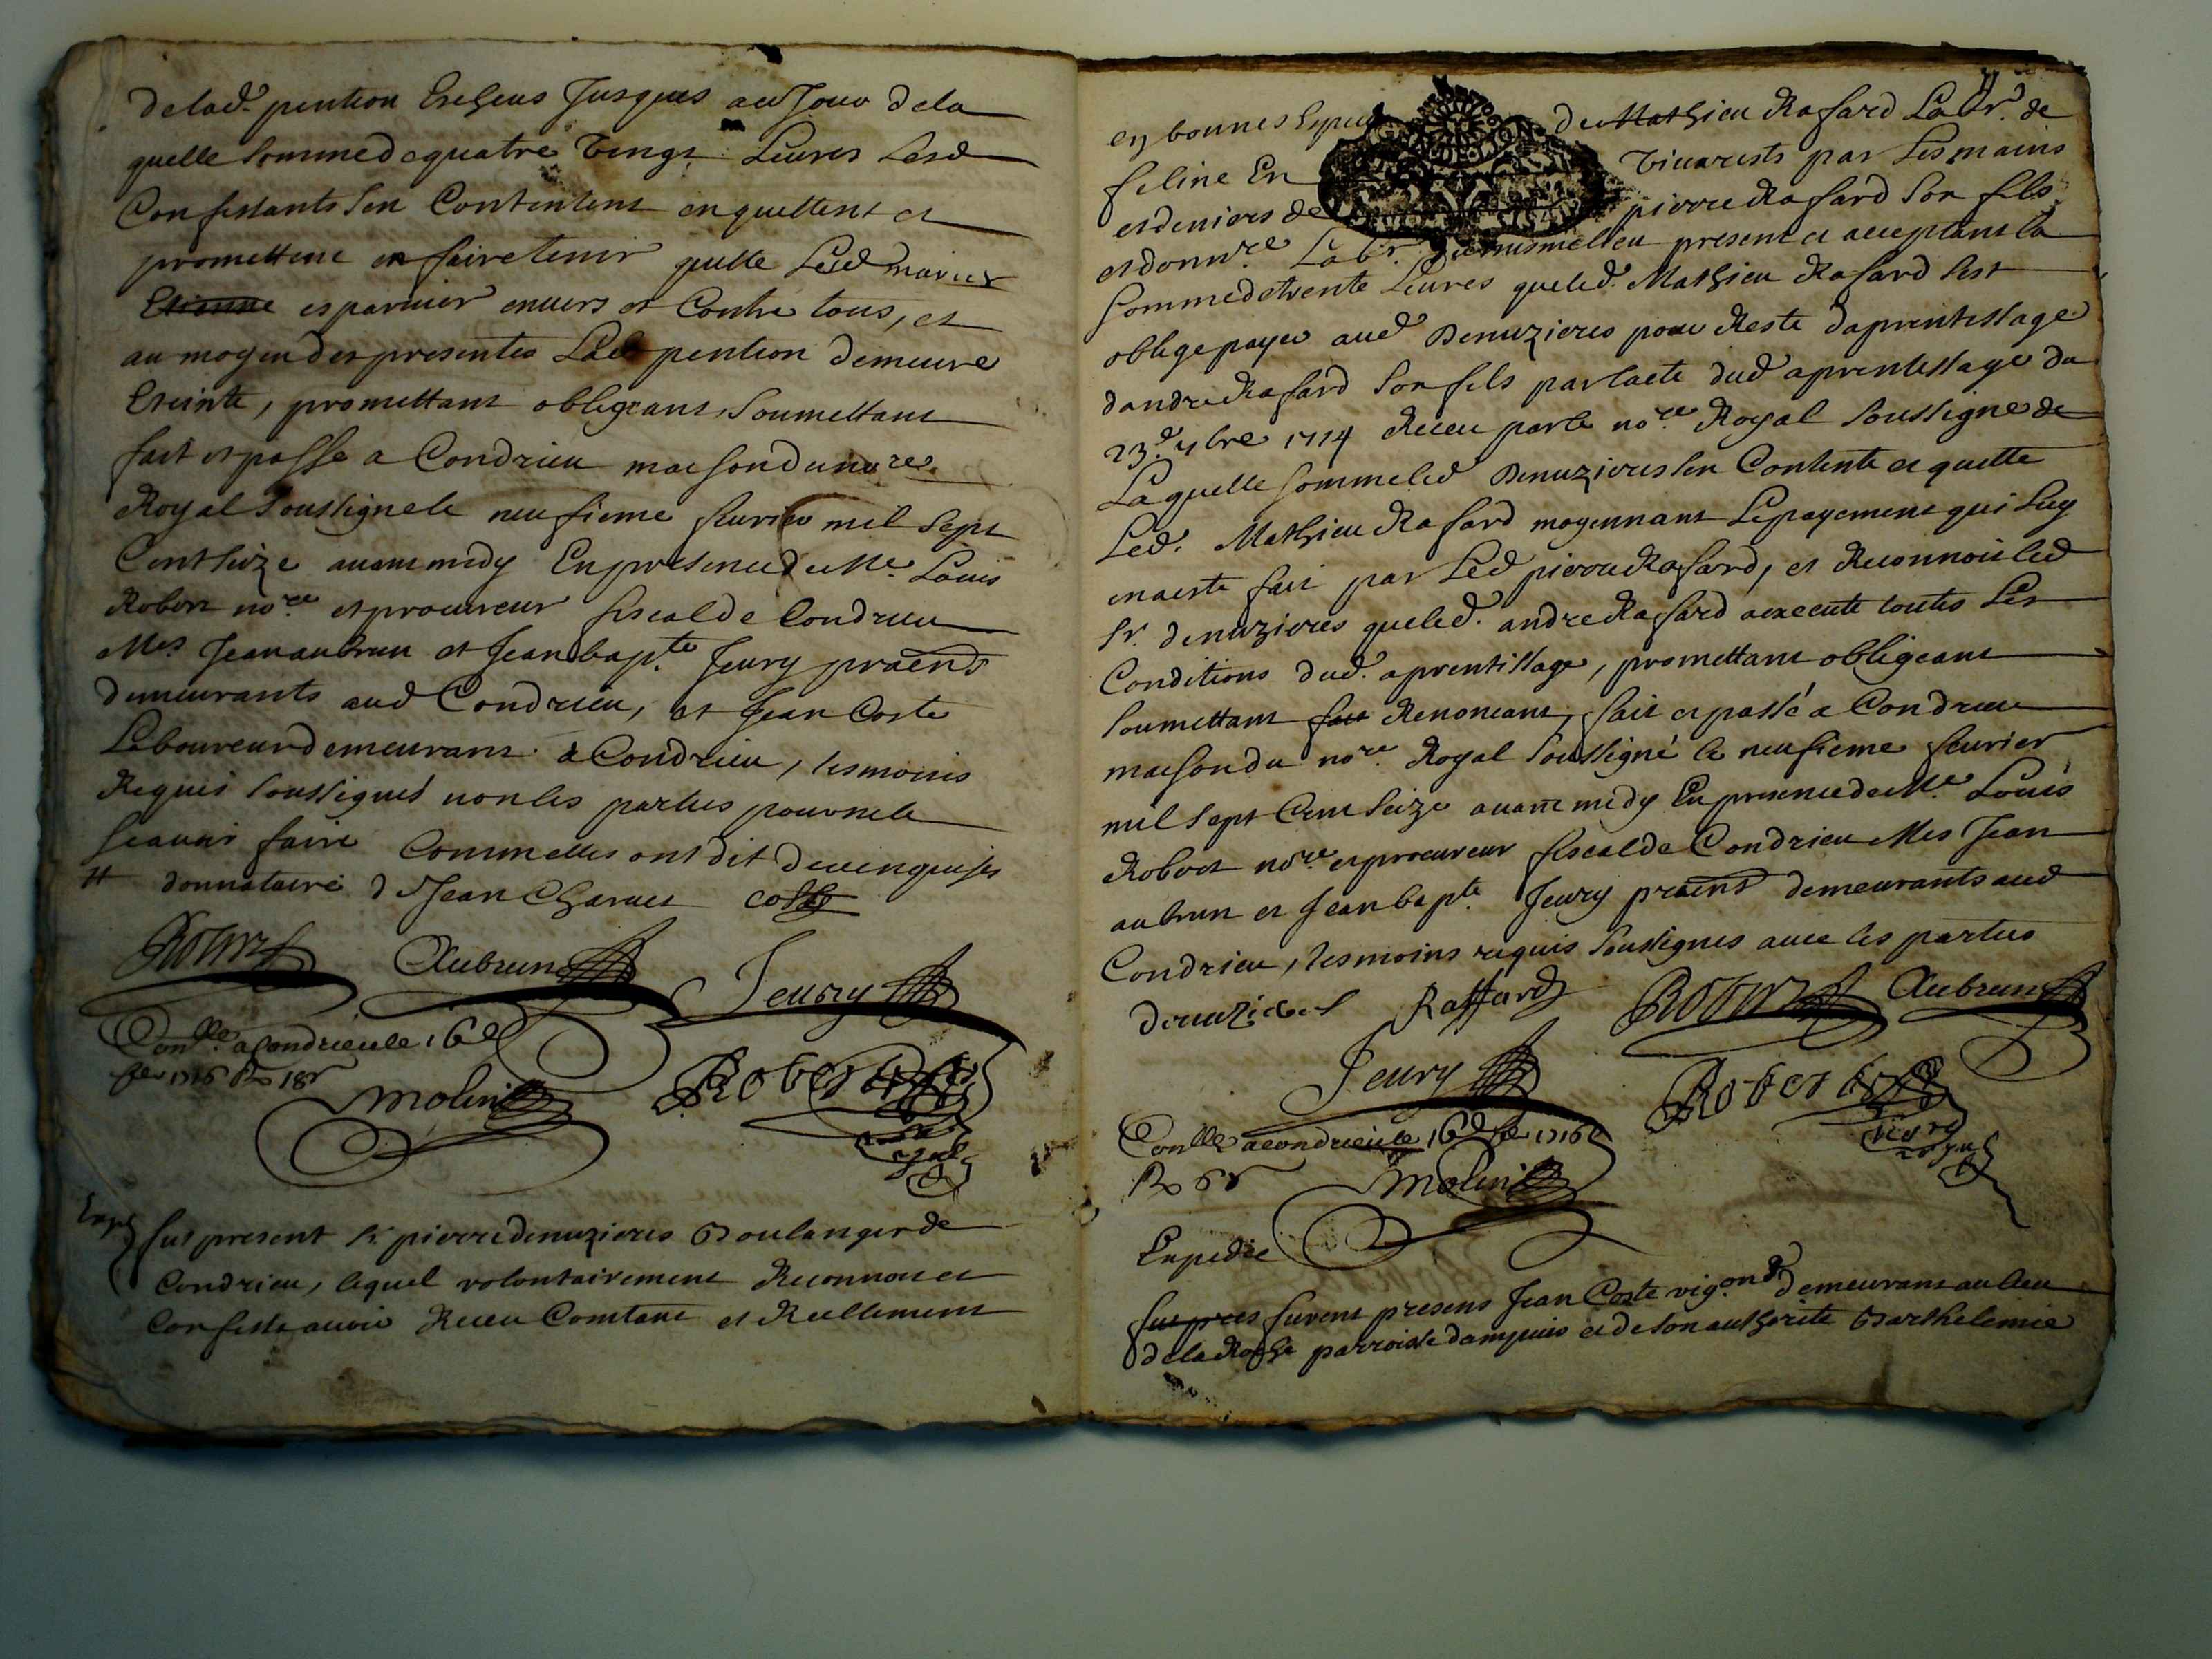 delad.e pention Escheus Jusques au Jour dela
quelle Somme dequatre Vingt Livres Lesd
Confessants Sen Contentent enquittent et
promettent enfaire tenir quitte Lesd
Etienne esparvier envers et Contre tous, et
au moyen des presentes Lad pention demeure
Eteinte, promettant obligeant, Soumettant
fait et passe a Condrieu maison du no.re
Royal Soussigne le neufieme fevrier mil Sept
Cent Seize avant midy En presence de Me. Louis
Robert no.re et procureur fiscal de Condrieu
Mes Jean aubrun et Jean bap.te Jeury
demeurants aud Condrieu, et Jean Coste
Laboureur demeurant a Condrieu, tesmoins
Requis Soussignes non les parties pour ne le
Scavoir faire Comme elles ont dit de ce enquises
donnataire d Jean Charvet coste
Robert Aubrun Jeury
Con.lle a Condrieu le 16e
fev 1716 R 18s
Molin Robert
no.re
royal
Exp
fut present Sr. pierre denuzieres Boulanger de
Condrieu, lequel volontairement Reconnoit et
Confesse avoir Receu Comtant et Reellement
en bonnes Especes de Mathieu Rafard Lab.r de
feline En Vivarests par Les mains
et deniers de pierre Rafard Son fils
et donn.re Lab.r present et acceptant la
Somme de trente Livres queled. Mathieu Rafard Sest
oblige payer aud Denuzieres pour Reste daprentissage
dandre Rafard Son fils par lacte dud aprentissage du
23.e 7bre 1714 Receu par le no.re Royal Soussigne de
Laquelle Somme led Denuzieres Sen Contente et quitte
Led. Mathieu Rafard moyennant Le payement qui Luy
en a este fait par Led pierre Rafard, et Reconnoit led
Sr. denuzieres queled. andre Rafard a execute toutes Les
Conditions dud. aprentissage, promettant obligeant
Soumettant fait Renoncant, fait et passé a Condrieu
maison du no.re Royal Soussigné le neufieme fevrier
mil Sept Cent Seize avant midy En presence de Me. Louis
Robert no.re et procureur fiscal de Condrieu Mes Jean
aubrun et Jean bap.te Jeury demeurants aud
Condrieu, tesmoins requis Soussignes avec les parties
denuzieres Raffard Robert Aubrun
Jeury
Con.lle a Condrieu le 16e fev 1716
R 6s
Molin Robert
no.re
royal
Expedie
fut pres furent presens Jean Coste vig.on demeurant au lieu
de la Roche parroisse dampuis et de Son authorite Barthelemie